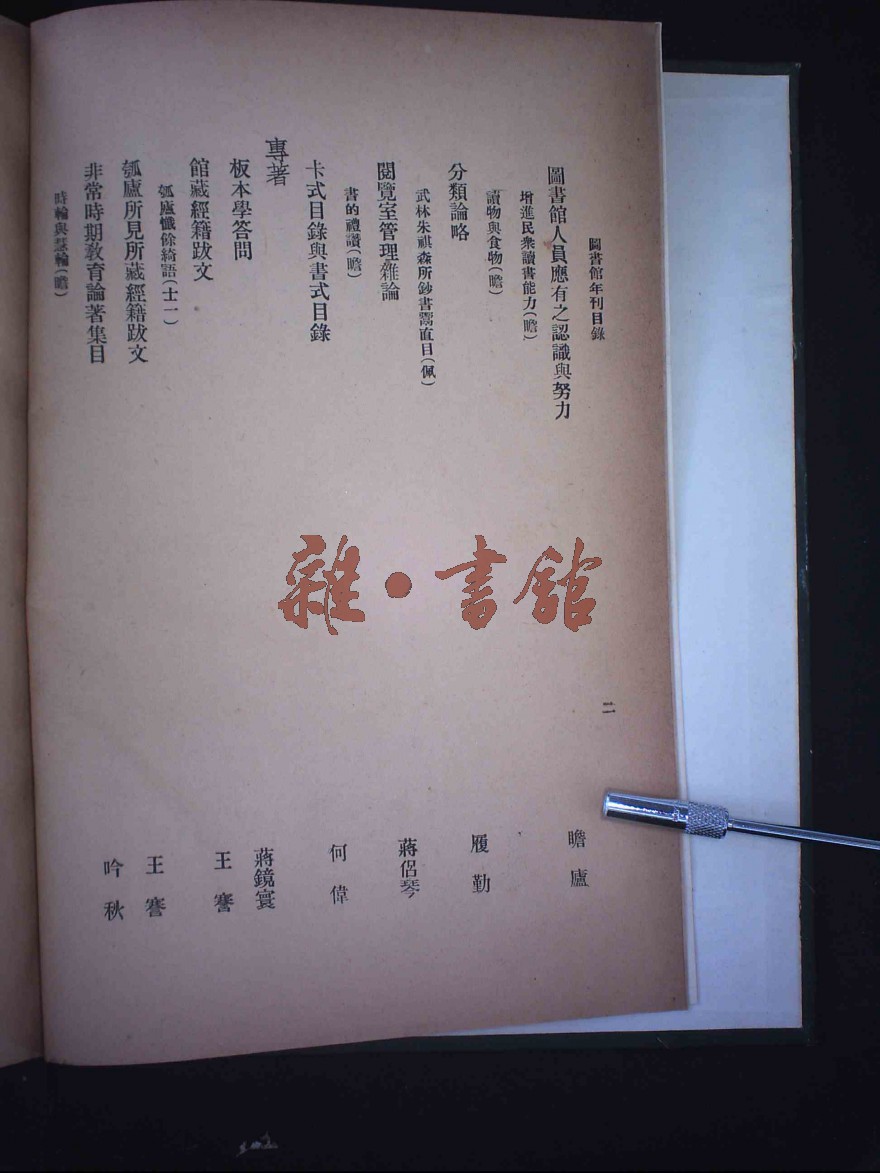 圖書館年刊目錄
二
圖書館人員應有之認識與努力
瞻廬
增進民衆讀書能力(瞻)
讀物與食物(瞻)
分類論略
履勤
武林朱祺森所鈔書鬻直目(佩)
閱覽室管理雜論
蔣侶琴
書的禮讚(瞻)
卡式目錄與書式目錄
何偉
專著
板本學答問
蔣鏡寰
館藏經籍跋文
王謇
瓠廬懺餘綺語(士一)
瓠廬所見所藏經籍跋文
王謇
非常時期教育論著集目
吟秋
時輪與慧輪(瞻)
雜·書館